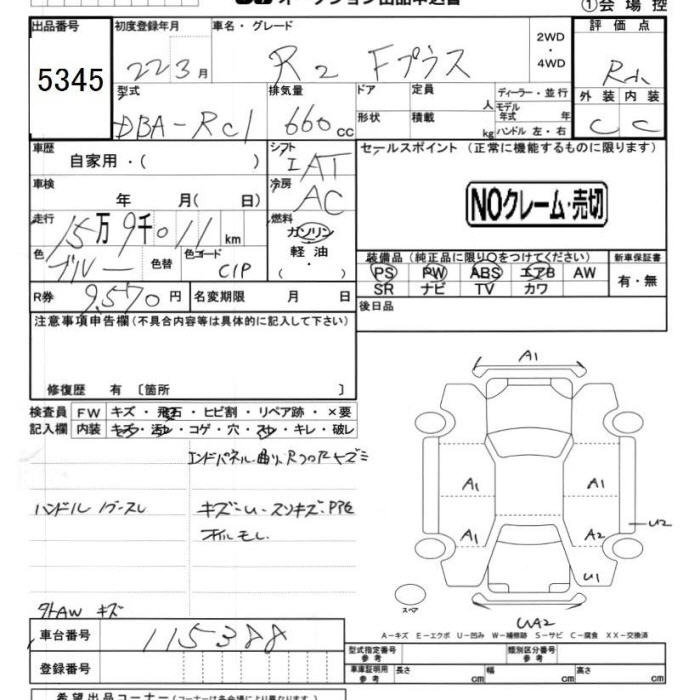 ①会場控
出品番号
初度登録年月
車名・グレード
2WD
・
4WD
評価点
5345
22 3月
R2 Fプラス
型式
排気量
ドア
定員
人
ディーラー・並行
モデル年式 年
外装 内装
DBA-RC1
660 cc
形状
積載
kg
ハンドル 左・右
C C
車歴
自家用・( )
シフト
IAT
セールスポイント (正常に機能するものに限ります)
車検
年 月( 日)
冷房
AC
NOクレーム・売切
走行
15万9千011 km
燃料
ガソリン
軽油
・( )
色
ブルー
色替
色コード
C1P
装備品 (純正品に限り○をつけてください)
新車保証書
PS PW ABS エアB AW
SR ナビ TV カワ
有・無
R券 9,570円
名変期限 月 日
後日品
注意事項申告欄(不具合内容等は具体的に記入して下さい)
修復歴 有 〔箇所 〕
検査員
記入欄
FW キズ・飛石・ヒビ割・リペア跡・×要
内装 キズ・汚レ・コゲ・穴・スレ・キレ・破レ
エンドパネル曲り
ハンドル
オイルモレ
外AW キズ
A1
A1
A1
A1
A2
U2
U1
UA2
スペア
A-キズ E-エクボ U-凹み W-補修跡 S-サビ C-腐食 XX-交換済
車台番号 115388
登録番号
型式指定番号
参考
類別区分番号
参考
車庫証明用
参考
長さ cm
幅 cm
高さ cm
希望出品コーナー